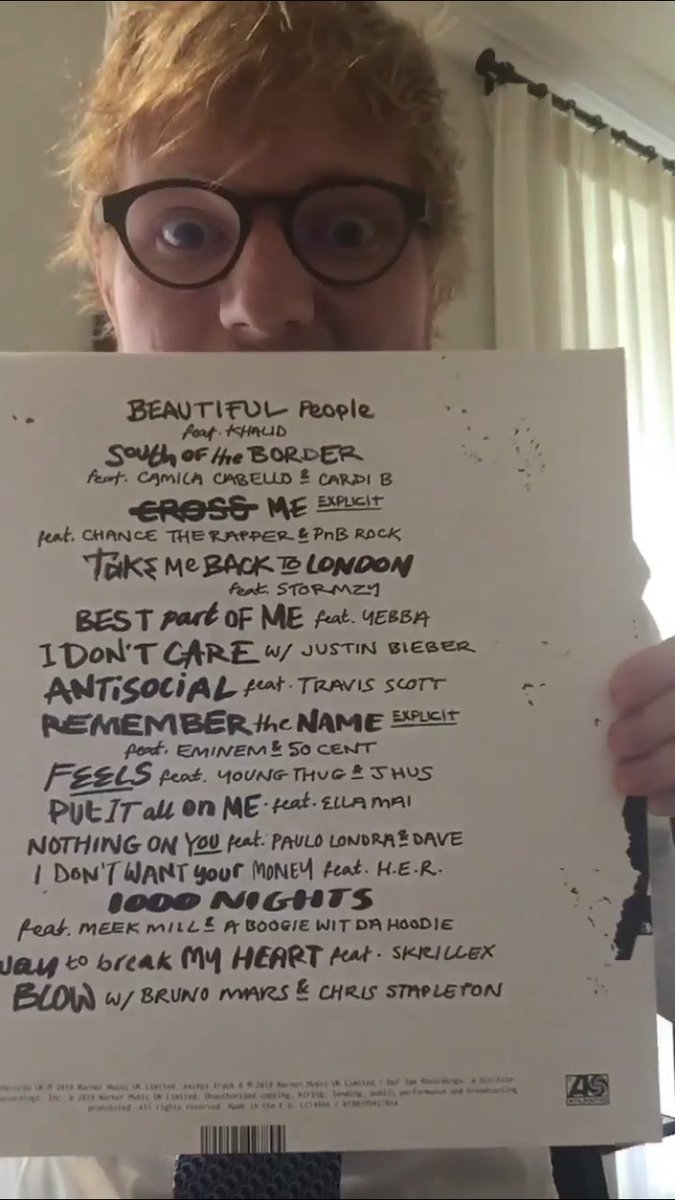 BEAUTIFUL People
feat. KHALID
South OF the BORDER
feat. CAMILA CABELLO & CARDI B
CROSS ME EXPLICIT
feat. CHANCE THE RAPPER & PnB ROCK
TAKE Me BACK TO LONDON
feat. STORMZY
BEST part OF ME feat. YEBBA
I DON'T CARE w/ JUSTIN BIEBER
ANTISOCIAL feat. TRAVIS SCOTT
REMEMBER the NAME EXPLICIT
feat. EMINEM & 50 CENT
FEELS feat. YOUNG THUG & J HUS
PUT IT all on ME feat. ELLA MAI
NOTHING ON YOU feat. PAULO LONDRA & DAVE
I DON'T WANT your MONEY feat. H.E.R.
1000 NIGHTS
feat. MEEK MILL & A BOOGIE WIT DA HOODIE
way to break MY HEART feat. SKRILLEX
BLOW w/ BRUNO MARS & CHRIS STAPLETON
Records UK ℗ 2019 Warner Music UK Limited, except track 6 ℗ 2019 Warner Music UK Limited / Def Jam Recordings, a division
Recordings, Inc. © 2019 Warner Music UK Limited. Unauthorized copying, hiring, lending, public performance and broadcasting
prohibited. All rights reserved. Made in the E.U.
ATLANTIC